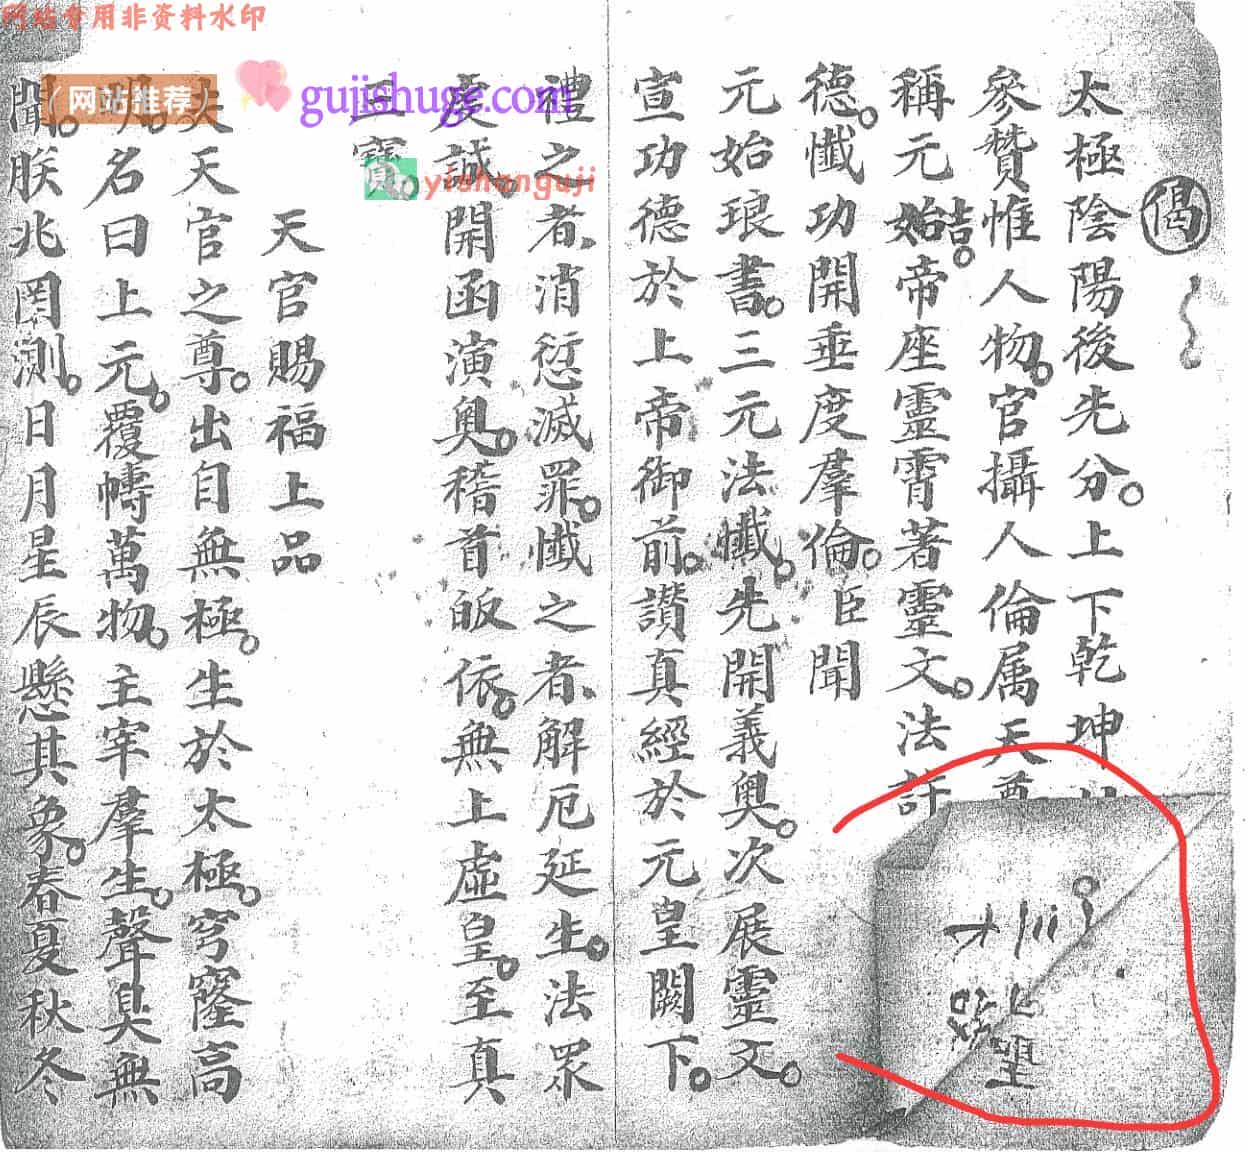 网站专用非资料水印
(网站推荐)
gujishuge.com
yishanguji
偈
太極陰陽後先分上下乾坤
參贊惟人物官攝人倫属天尊
稱元始吉帝座靈霄著靈文法許
德懺功開垂度羣倫臣聞
元始琅書三元法懺先開義奧次展靈文
宣功德於上帝御前讃真經於元皇闕下
禮之者消愆滅罪懺之者解厄延生法眾
虔誠開函演奧稽首皈依無上虛皇至真
三寶
天官賜福上品
夫天官之尊出自無極生於太極穹窿高
明名曰上元覆幬萬物主宰羣生聲臭無
聞朕兆罔測日月星辰懸其象春夏秋冬